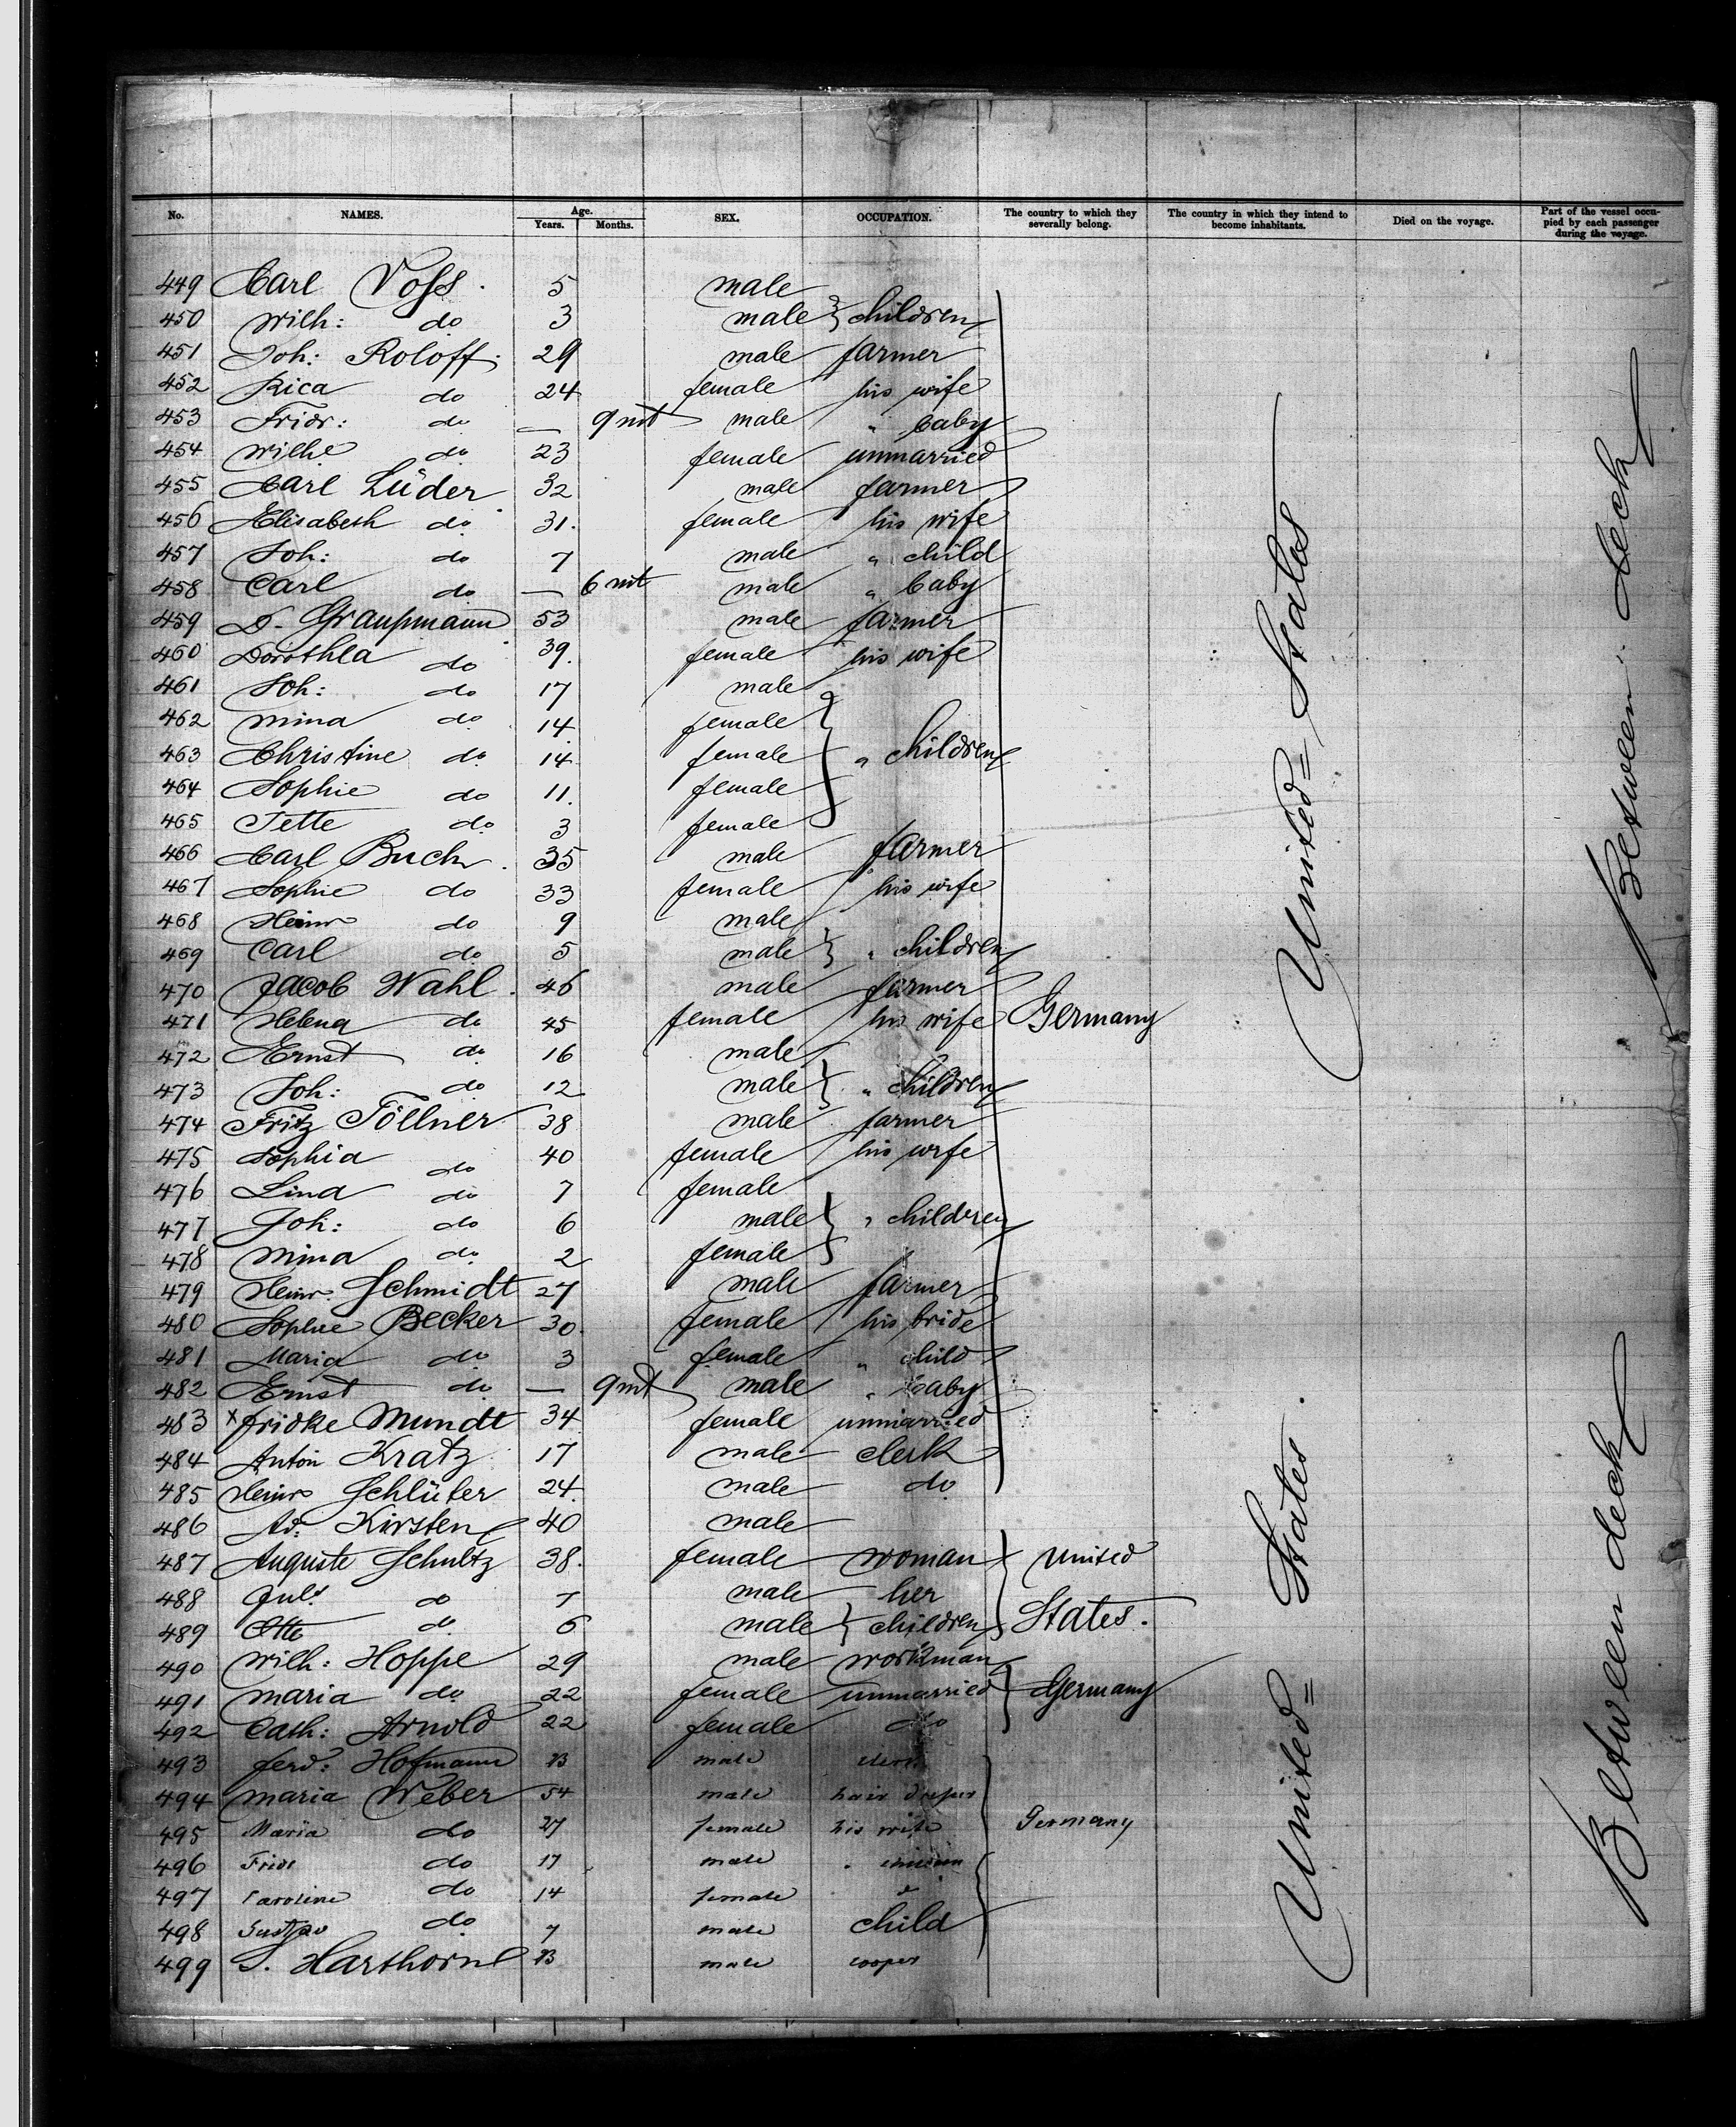 No. NAMES. Age. Years. Months. SEX. OCCUPATION. The country to which they severally belong. The country in which they intend to become inhabitants. Died on the voyage. Part of the vessel occupied by each passenger during the voyage.
449 Carl Voss. 5 male
450 Wilh: do 3 male } children
451 Joh: Roloff. 29 male farmer
452 Rica do 24 female his wife
453 Fridr: do — 9 mt male " baby
454 Wilhe do 23 female unmarried
455 Carl Lüder 32 male farmer
456 Elisabeth do 31. female his wife
457 Joh: do 7 male " child
458 Carl do — 6 mt male " baby
459 D. Graupmann 53 male farmer
460 Dorothea do 39. female his wife
461 Joh: do 17 male
462 Mina do 14. female
463 Christine do 14 female } " children
464 Sophie do 11. female
465 Jette do 3 female
466 Carl Buch. 35 male farmer
467 Sophie do 33 female his wife
468 Heinr do 9 male
469 Carl do 5 male } " children
470 Jacob Wahl. 46 male farmer
471 Helena do 45 female his wife Germany
472 Ernst do 16 male
473 Joh: do 12 male } " children
474 Fritz Töllner 38 male farmer
475 Sophia do 40 female his wife
476 Lina do 7 female
477 Joh: do 6 male } " children
478 Mina do 2 female
479 Heinr. Schmidt 27 male farmer
480 Sophie Becker 30. female his bride
481 Maria do 3 female " child
482 Ernst do — 9 mt male " baby
483 x Fridke Mundt 34 female unmarried
484 Anton Kratz 17 male clerk
485 Heinr Schlüter 24. male do
486 Ad: Kirsten 40 male
487 Auguste Schultz 38. female woman } United
488 Juls do 7 male her
489 Otto do 6 male } children States.
490 Wilh: Hoppe 29 male workman
491 Maria do 22 female unmarried } Germany
492 Cath: Arnold 22 female do
493 Ferd: Hofmann male
494 Maria Weber 54 male hair
495 Maria do 27 female his wife Germany
496 do 17 male "
497 Caroline do 14 female
498 Gustav do 7 male child
499 S. Harthorne male cooper
United = States
Between deck
United = States.
Between deck